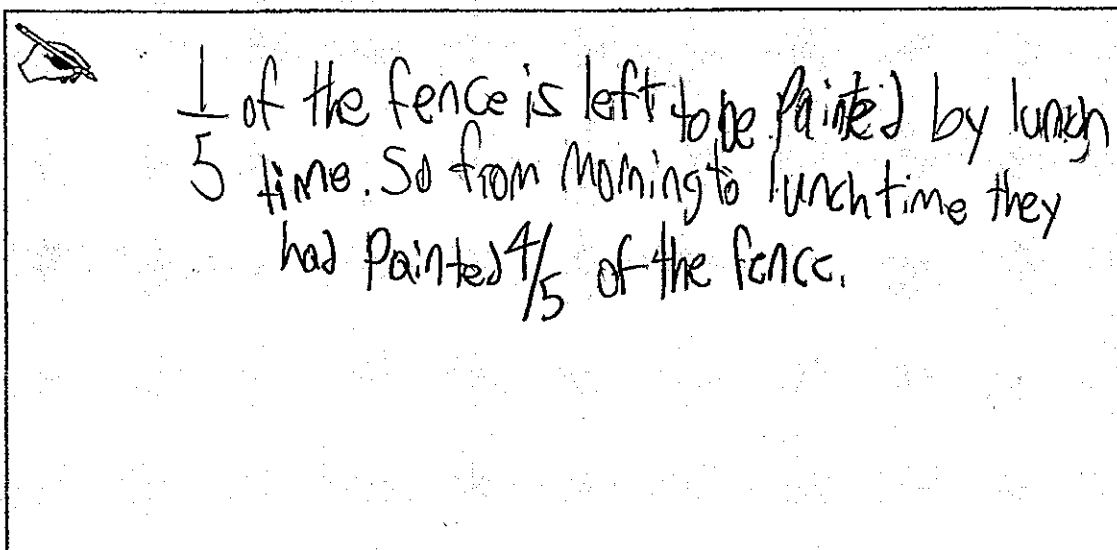 1/5 of the fence is left to be Painted by lunch
time. So from Morning to lunch time they
had Painted 4/5 of the fence.